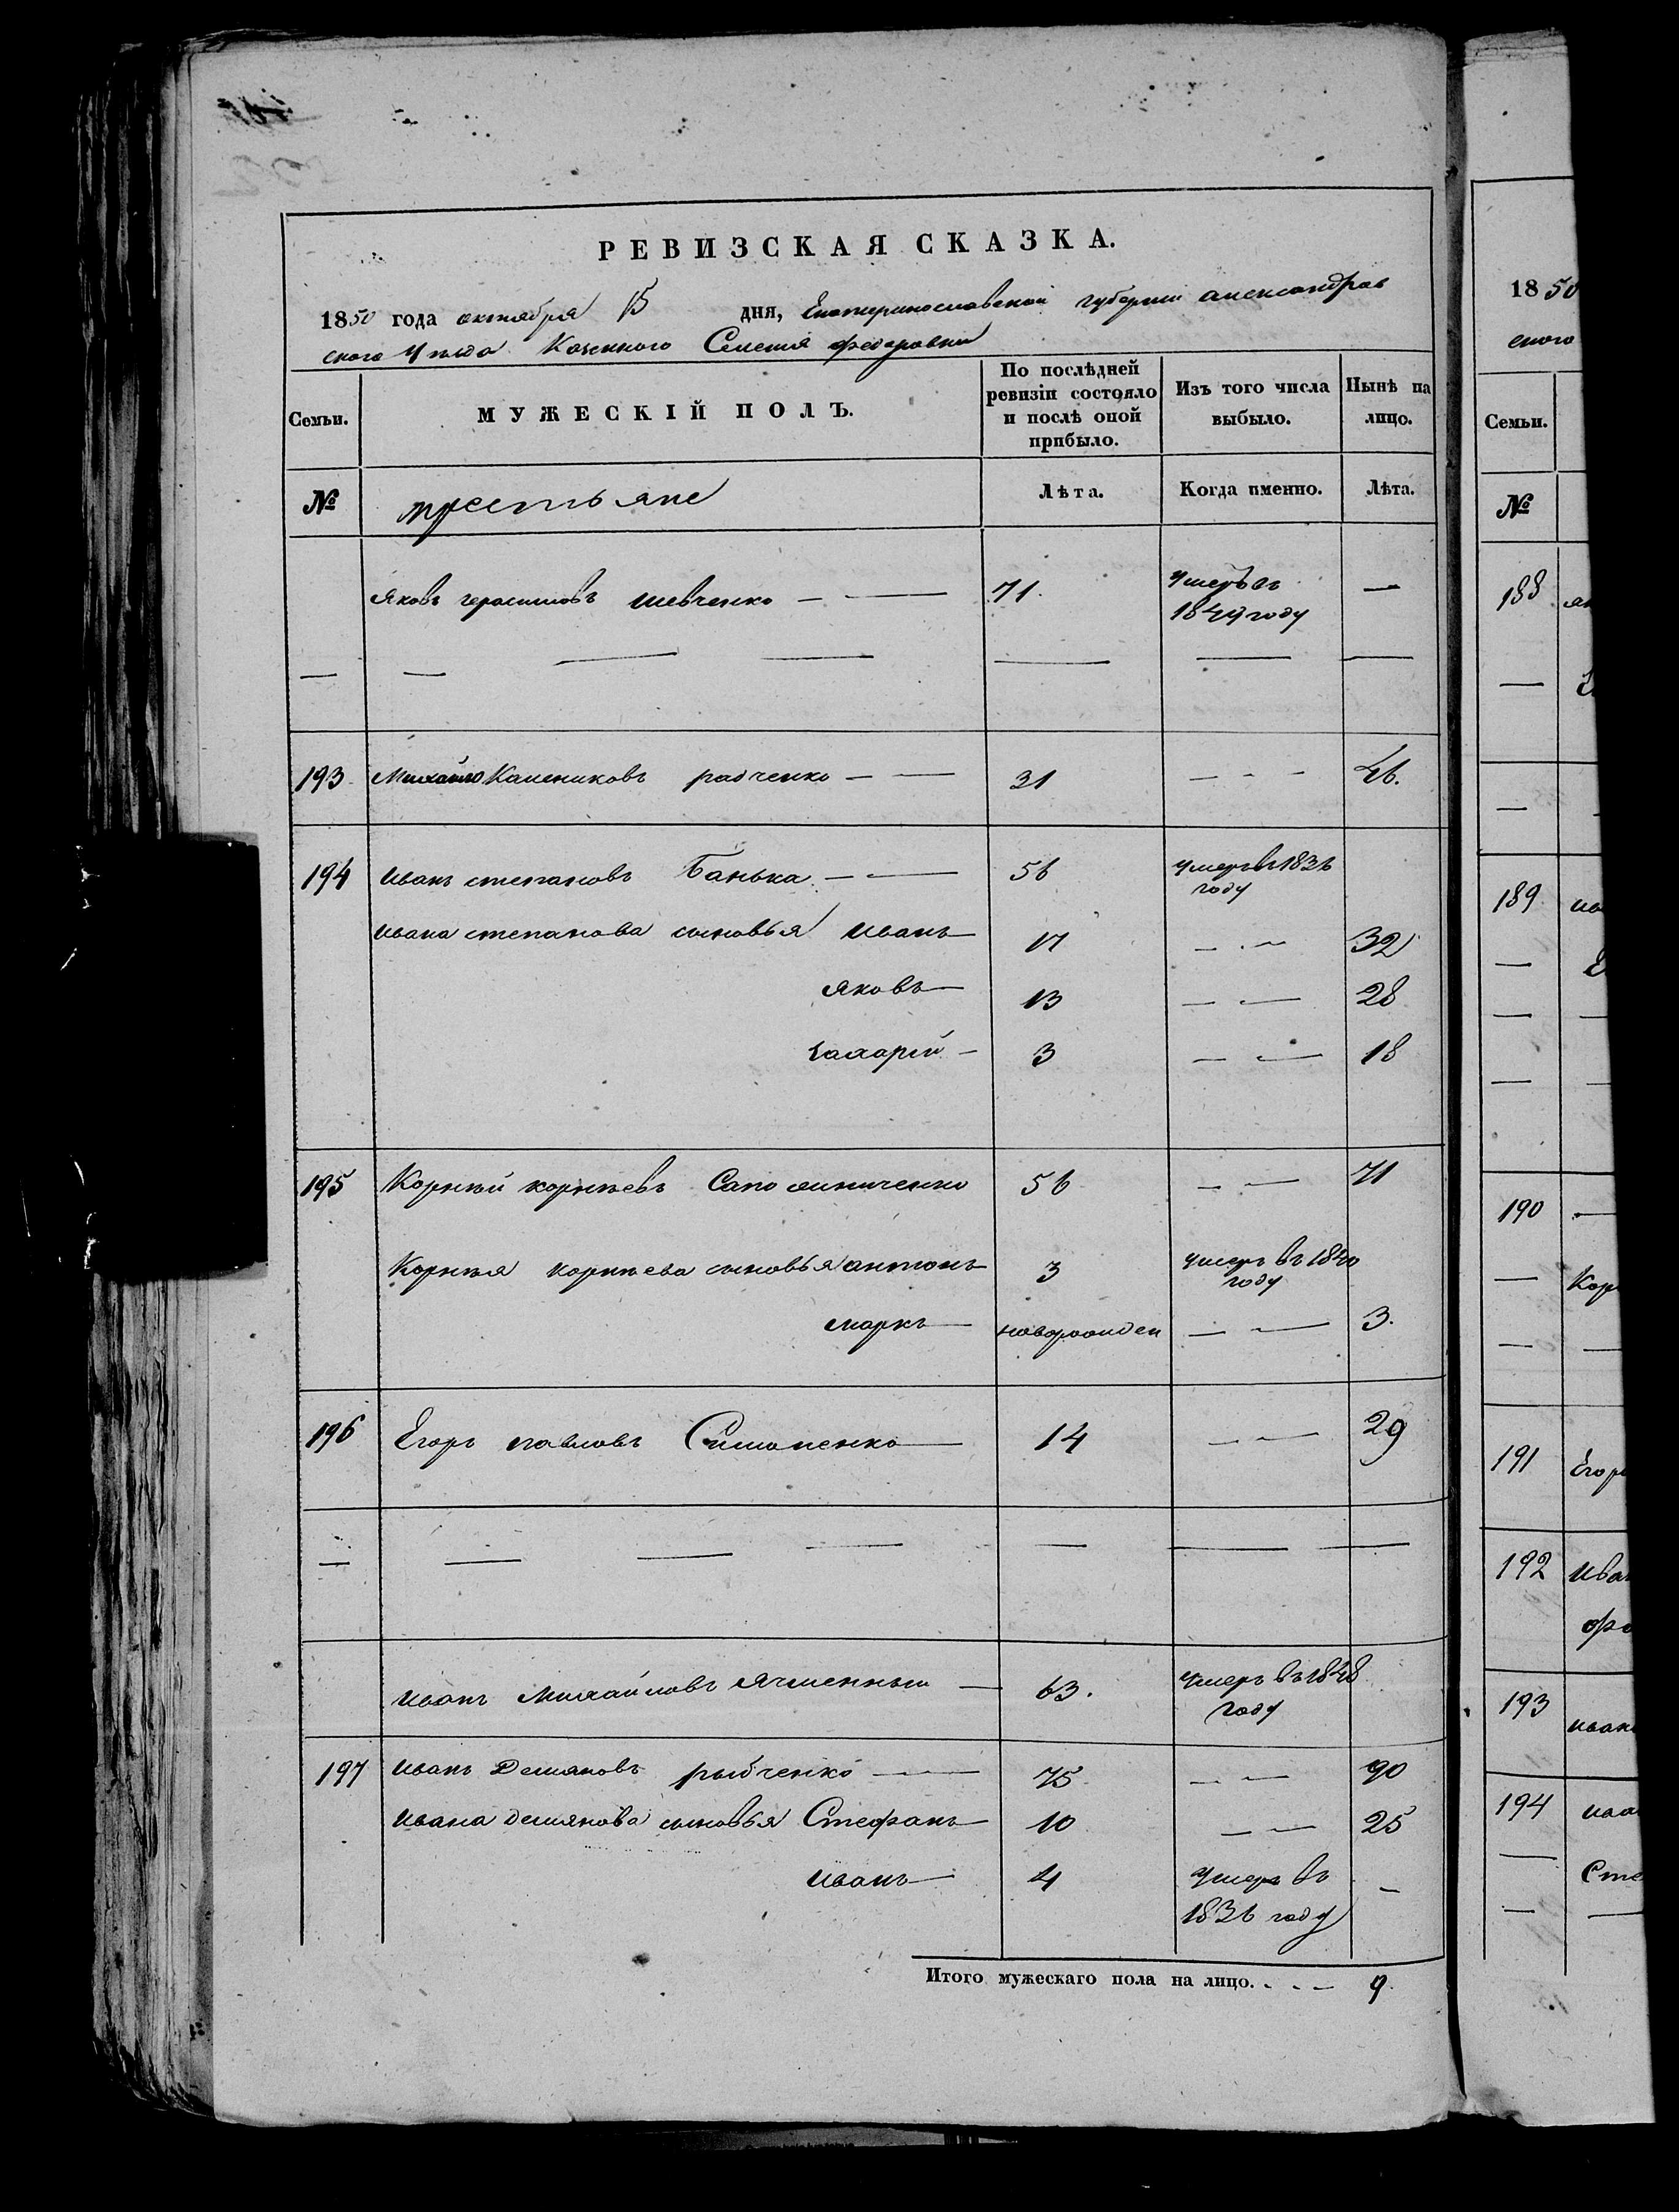 РЕВИЗСКАЯ СКАЗКА.
1850 года октября 15 дня, Екатеринославской губернии александров
ского Уезда Казенного Селения федоровки
Семьи.
МУЖЕСКІЙ ПОЛЪ.
По послѣдней ревизіи состояло и послѣ оной прибыло.
Изъ того числа выбыло.
Нынѣ на лицо.
№ крестьяне Лѣта. Когда именно. Лѣта.
Яковъ герасимовъ шевченко — — 71. умеръ въ 1849 году —
— — — — — — —
193 Михайло радченко — — 31 — - - 46.
194 иванъ степановъ Банька — — 56 умеръ въ 1836 году
ивана степанова сыновья иванъ — 17 — - — 32
яковъ — 13 — — 28
захарій — 3 — — 18
195 Корнѣй корнѣевъ 56 — — 71
Корнѣя корнѣева сыновья антонъ — 3 умеръ въ 1840 году
маркъ — новорожден — — 3.
196 Егоръ павловъ Симоненко — 14 — — 29
— — — — — — —
иванъ Михайловъ ячменный — 63. умеръ въ 1848 году
197 иванъ Демяновъ рыбченко — — 75 — — 90
ивана демянова сыновья Стефанъ — 10 — — 25
иванъ — 4 умеръ въ 1836 году —
Итого мужескаго пола на лицо. - - — 9.
1850
ского
Семьи.
№
188
—
—
189
—
—
—
190 —
— Кор
— —
191 Егор
192 Ива
193 иван
194 ива
— Сте
— —